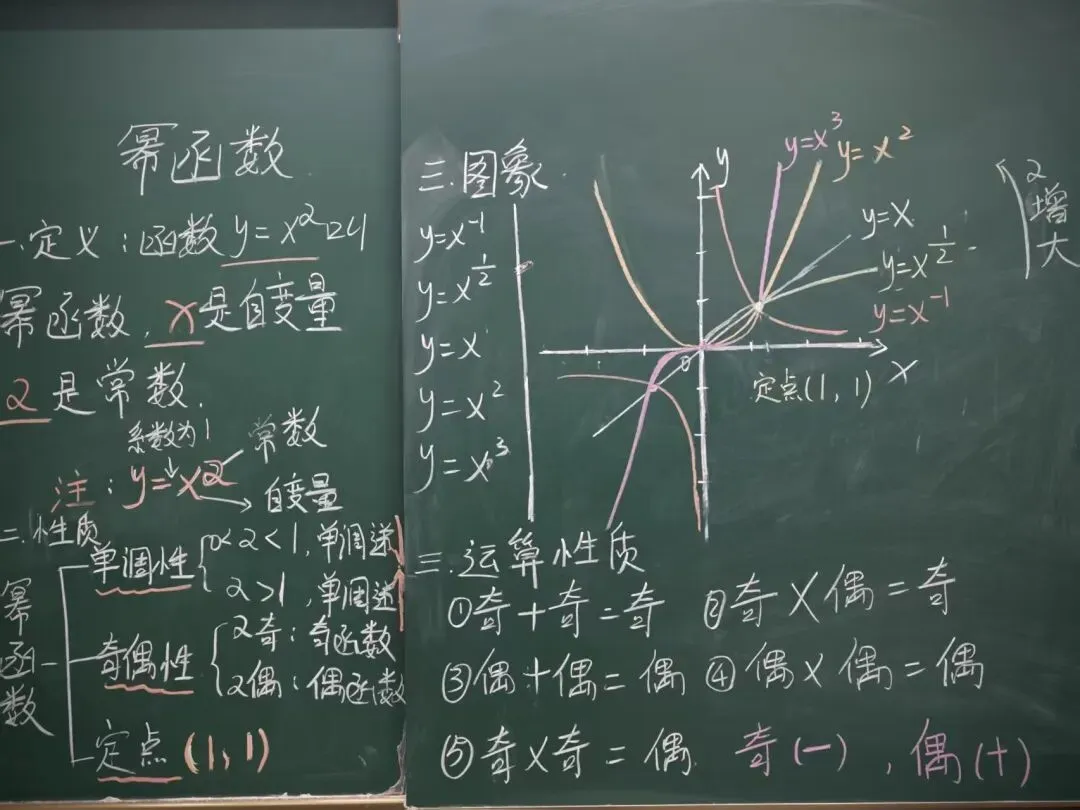 幂函数
一.定义:函数y=x²叫
幂函数,x是自变量
2是常数.
系数为1
常数
注:y=x2
自变量
二.性质
幂函数
单调性
0<2<1,单调递
2>1,单调递
奇偶性
2奇:奇函数
2偶:偶函数
定点(1,1)
三.图象
y=x⁻¹
y=x^{1/2}
y=x
y=x²
y=x³
y
y=x³
y=x²
y=x
y=x^{1/2}
y=x⁻¹
0
x
定点(1,1)
2
增大
三.运算性质
①奇+奇=奇 ②奇×偶=奇
③偶+偶=偶 ④偶×偶=偶
⑤奇×奇=偶 奇(一),偶(+)